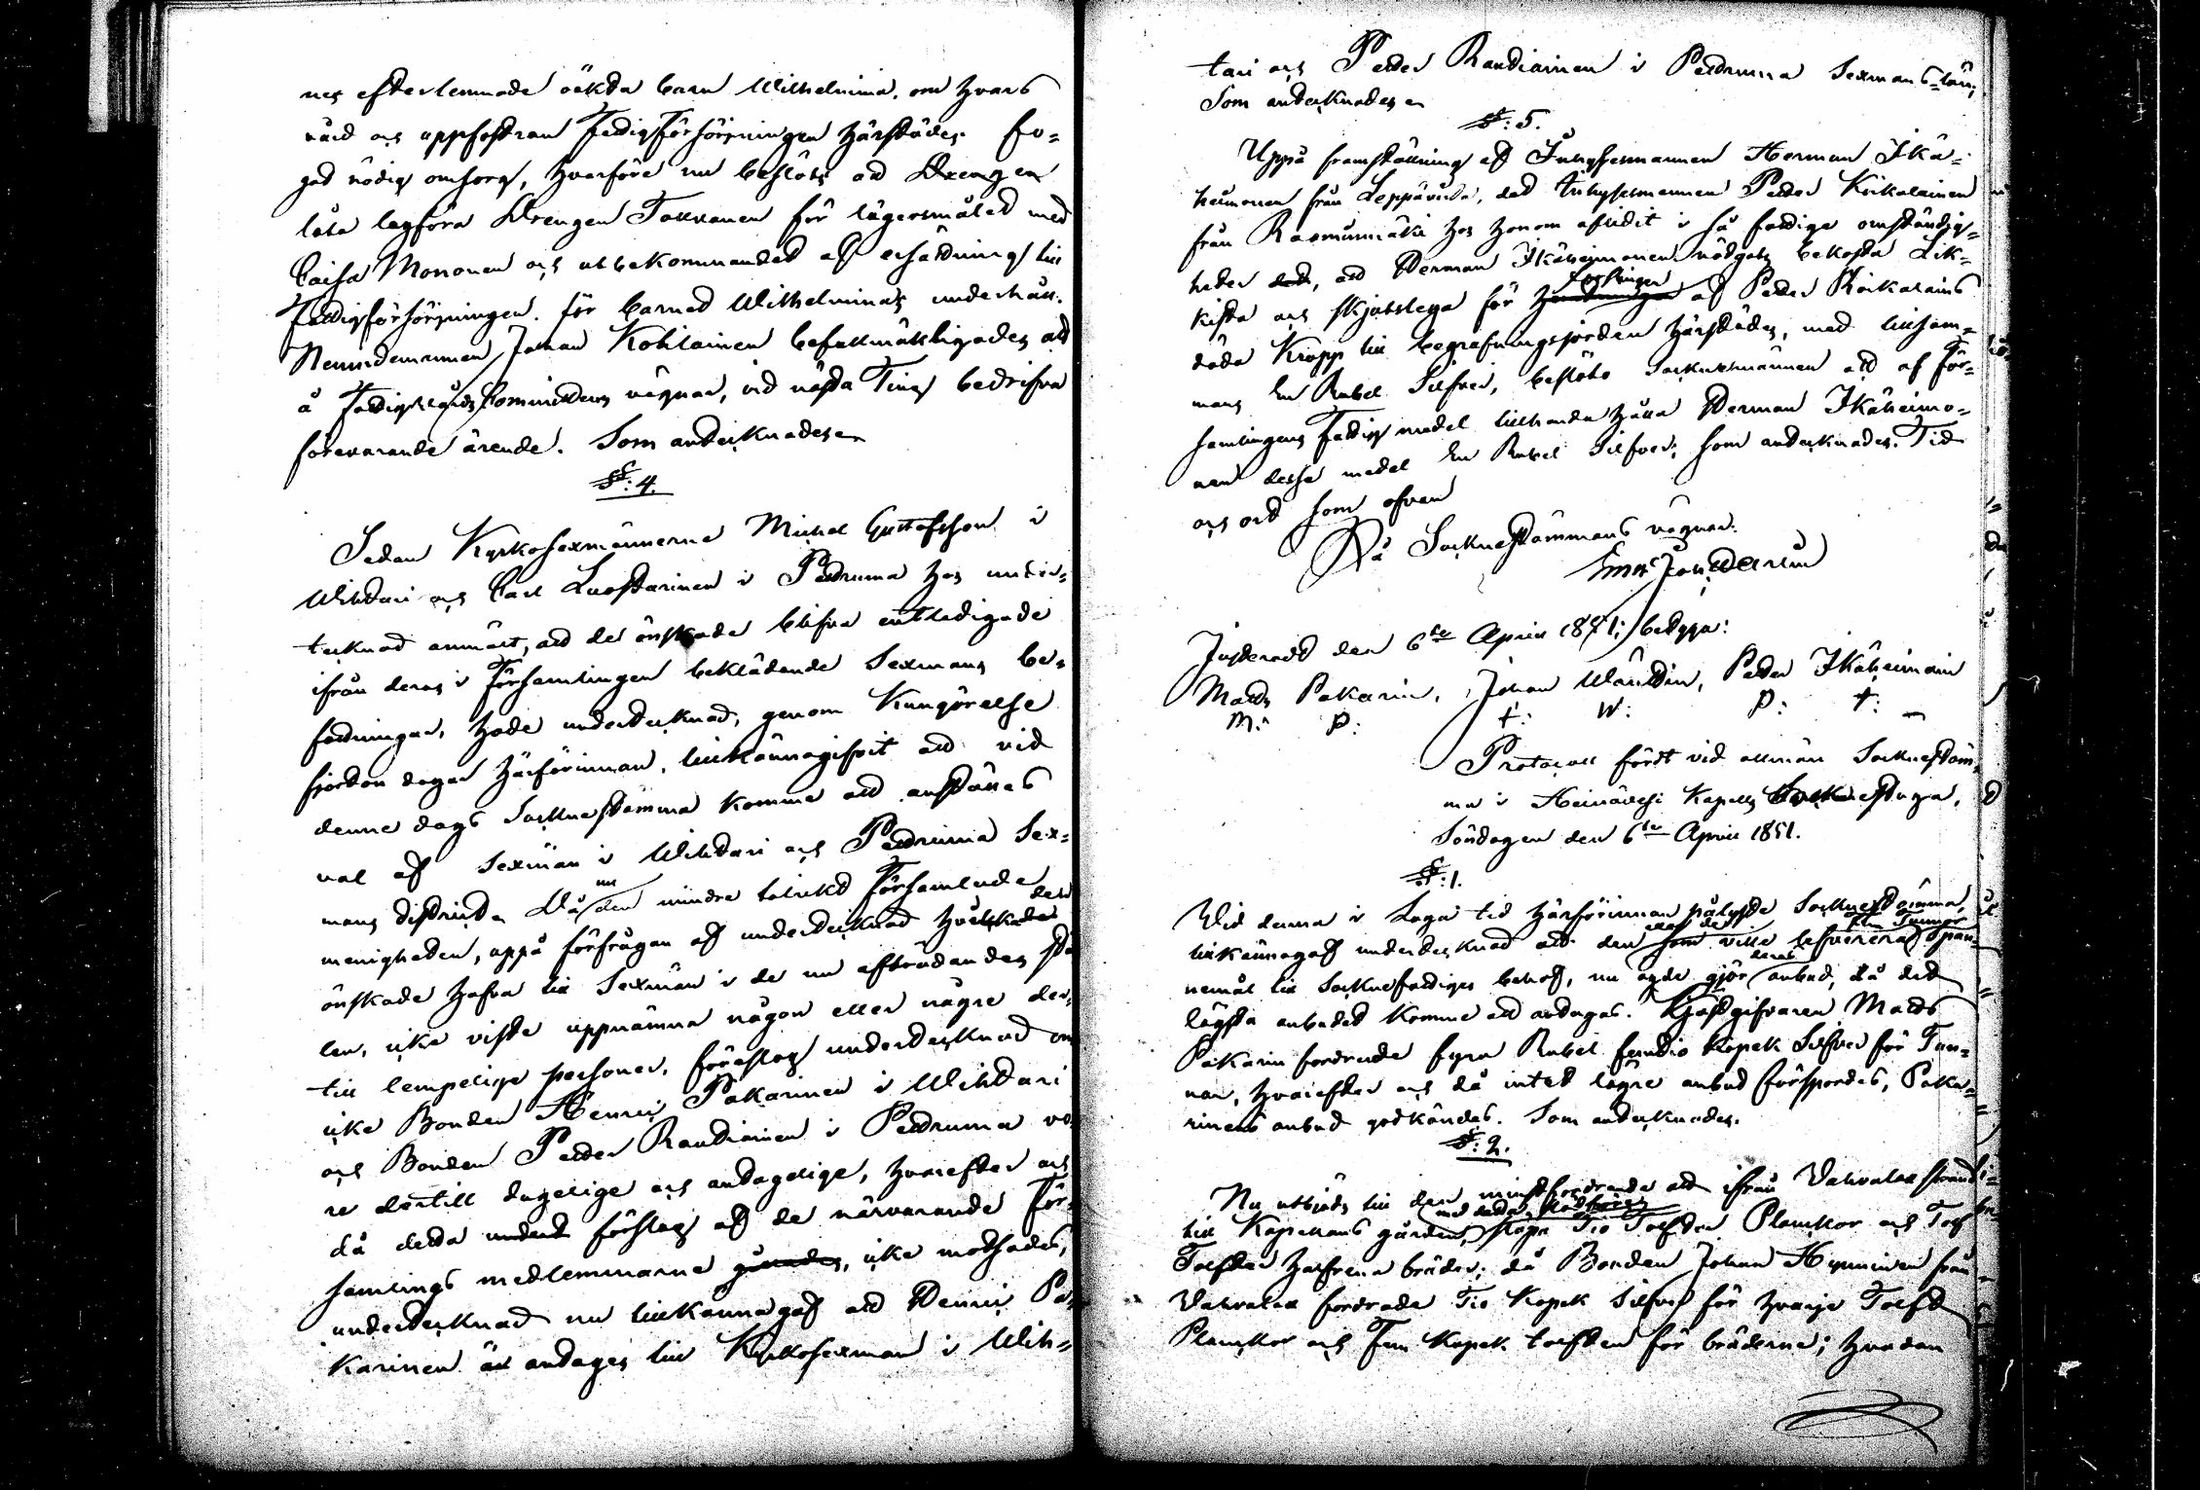 nes efterlemnade oäkta barn Wilhelmina, om hvars
vård och uppfostran Fattigförsörjningen härstädes fo=
gat nödig omsorg, hvarföre nu beslöts att
låta lagföra Drengen Tavvanen för lägersmålet med
Caisa Mononen och utbekommandet af ersättning till
Fattigförsörjningen för barnet Wilhelminas underhåll.
Nemndemannen Johan Kohlainen befullmäktigades att
å Fattigvårds Committéens vägnar, vid nästa Ting bedrifva
förevarande ärende. Som antecknades
§: 4.
Sedan Kyrkosexmännerne Michel Gustafsson i
Wihtari och Carl Luostarinen i Petruma hos under=
tecknad anmält, att de önskade blifva entledigade
ifrån deras i Församlingen beklädande Sexmans be=
fattningar, hade undertecknad, genom Kungörelse
fjorton dagar härförinnan, tillkännagifvit att vid
denne dags Sockne stämma komme att anställas
val af Sexmän i Wihtari och Petruma Sex=
mans distrikt. Då nu den mindre talrikt Församlade
menigheten, uppå förfrågan af undertecknad hvilka de
önskade hafva till Sexmän i de nu afträdandes stäl
len, icke visste uppnämna någon eller någre der=
till lempelige personer, föreslog undertecknad om
icke Bonden Henric Pakarinen i Wihtari
och Bonden Petter Rautiainen i Petruma vo
re dertill dugelige och antagelige, hvarefter och
då detta förslag af de närvarande För=
samlings medlemmarne, icke motsades,
undertecknad nu tillkännagaf att Henric Pa=
karinen är antagen till Kyrkosexman i Wih=
tari och Petter Rautiainen i Petruma Sexmans-län;
Som antecknades
§: 5.
Uppå framställning af Inhysesmannen Herman Ikä=
heimonen från Leppävirta, det Inhysesmannen Petter Koikalainen
från Rasmunmäki hos honom aflidit i så fattige omständig=
heter, att Herman Ikäheimonen nödgats bekosta Lik=
kista och skjutslega för forslingen af Petter Koikalains
döda Kropp till begrafningsjorden härstädes, med tillsam=
mans En Rubel Silfver, beslöto Socknemännen att af För=
samlingens Fattig medel tillhandahålla Herman Ikäheimo=
nen dessa medel En Rubel Silfver, som antecknades. Tid
och ort som ofvan
På Sockne stämmans vägnar.
Justeradt den 6te April 1851; betyga:
Matts Pakarin, Johan Wänttin, Petter Ikäheimoin
M: P: I: W: P: I:
Protocoll fördt vid allmän Socknestäm=
ma i Heinävesi Kapells Socknestuga,
Söndagen den 6te April 1851.
§: 1.
Wid denna i Laga tid härförinnan pålyste Socknestämma,
tillkännagaf undertecknad att den som ville lefverera Span=
nemål till Socknefattiges behof, nu egde göra deras anbud, då det
lägsta anbudet komme att antagas. Gästgifvaren Matts
Pakarin fordrade fyra Rubel femtio Kopek Silfver för Tun=
nan, hvarefter och då intet lägre anbud försportes, Paka=
rinens anbud godkändes. Som antecknades.
§: 2.
Nu utbjöds till den minstfordrande att ifrån Vahvalax strand
till Kapellans gården, köra Tio Tolfter Planckor och Tolf
Tolfter bräder; då Bonden Johan Hynninen från
Vahvalax fordrade Tio Kopek Silfver för hvarje Tolft
Planckor och Fem Kopek tolften för bräderne; hvadan